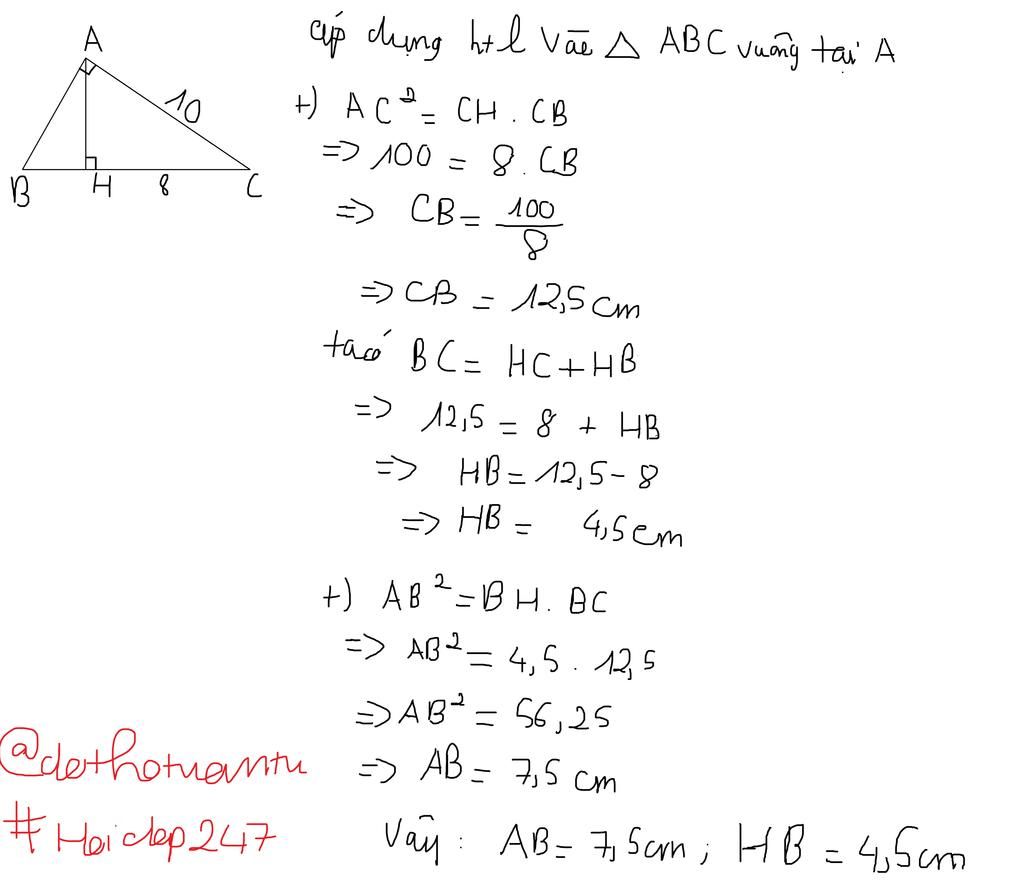 A
10
B H 8 C
áp dụng htl vào △ ABC vuông tại A
+) AC² = CH . CB
=> 100 = 8 . CB
=> CB = 100/8
=> CB = 12,5 cm
ta có BC = HC + HB
=> 12,5 = 8 + HB
=> HB = 12,5 - 8
=> HB = 4,5 cm
+) AB² = BH . BC
=> AB² = 4,5 . 12,5
=> AB² = 56,25
=> AB = 7,5 cm
Vậy : AB = 7,5cm ; HB = 4,5cm
@dethotuantu
#Hoidap247